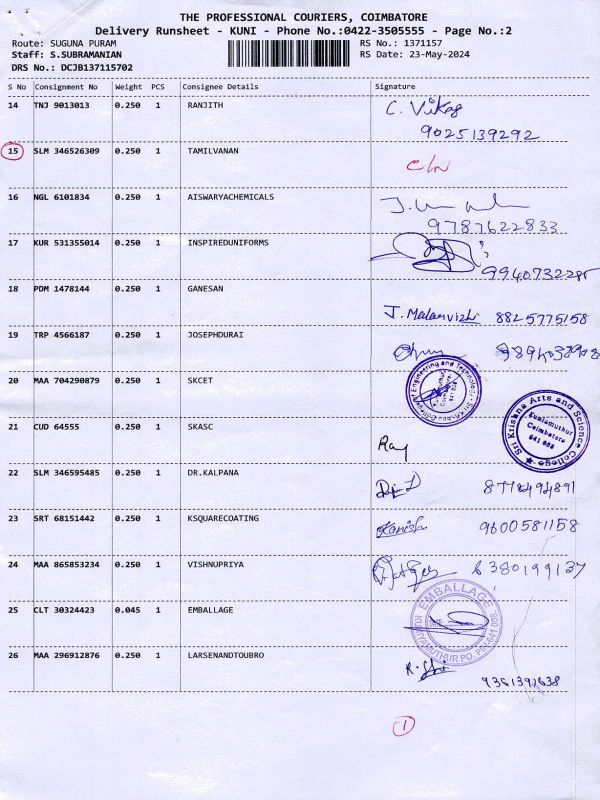 THE PROFESSIONAL COURIERS, COIMBATORE
Delivery Runsheet - KUNI - Phone No.:0422-3505555 - Page No.:2
Route: SUGUNA PURAM RS No.: 1371157
Staff: S.SUBRAMANIAN RS Date: 23-May-2024
DRS No.: DCJB137115702
S No Consignment No Weight PCS Consignee Details Signature
14 TNJ 9013013 0.250 1 RANJITH C. Vikas
9025139292
15 SLM 346526309 0.250 1 TAMILVANAN
16 NGL 6101834 0.250 1 AISWARYACHEMICALS
9787622833
17 KUR 531355014 0.250 1 INSPIREDUNIFORMS
18 PDM 1478144 0.250 1 GANESAN
J. Malarvizhi 8825775158
19 TRP 4566187 0.250 1 JOSEPHDURAI
20 MAA 704290879 0.250 1 SKCET
21 CUD 64555 0.250 1 SKASC
Sri Krishna Arts and Science College
Kuniamuthur
Coimbatore
641 008
Ray
22 SLM 346595485 0.250 1 DR.KALPANA
23 SRT 68151442 0.250 1 KSQUARECOATING
Kanish 9600581158
24 MAA 865853234 0.250 1 VISHNUPRIYA
6380199137
25 CLT 30324423 0.045 1 EMBALLAGE
EMBALLAGE
KUNIYAMUTHUR PO. PIN-641 008.
26 MAA 296912876 0.250 1 LARSENANDTOUBRO
9361391638
1